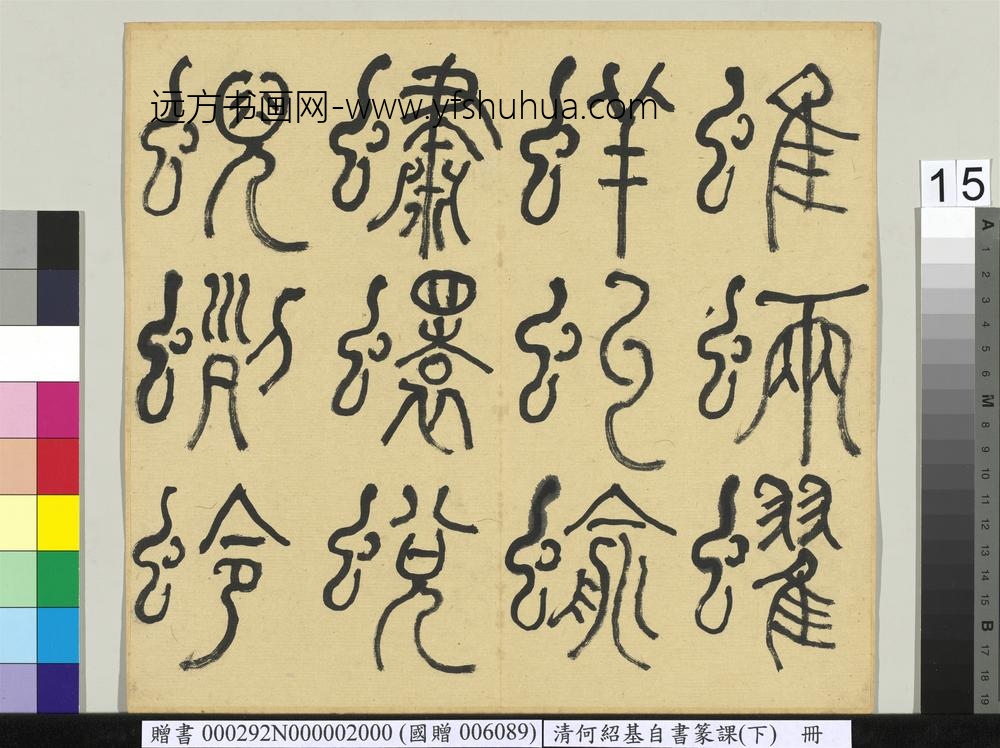 远方书画网-www.yfshuhua.com
蜼
蜽
蠗
蛘
蝓
蟰
蠉
蛻
蜺
蛚
蛉
15
A 1 2 3 4 5 6 M 8 9 10 11 12 13 14 15 B 17 18 19
贈書 000292N000002000 (國贈 006089) 清何紹基自書篆課(下) 冊